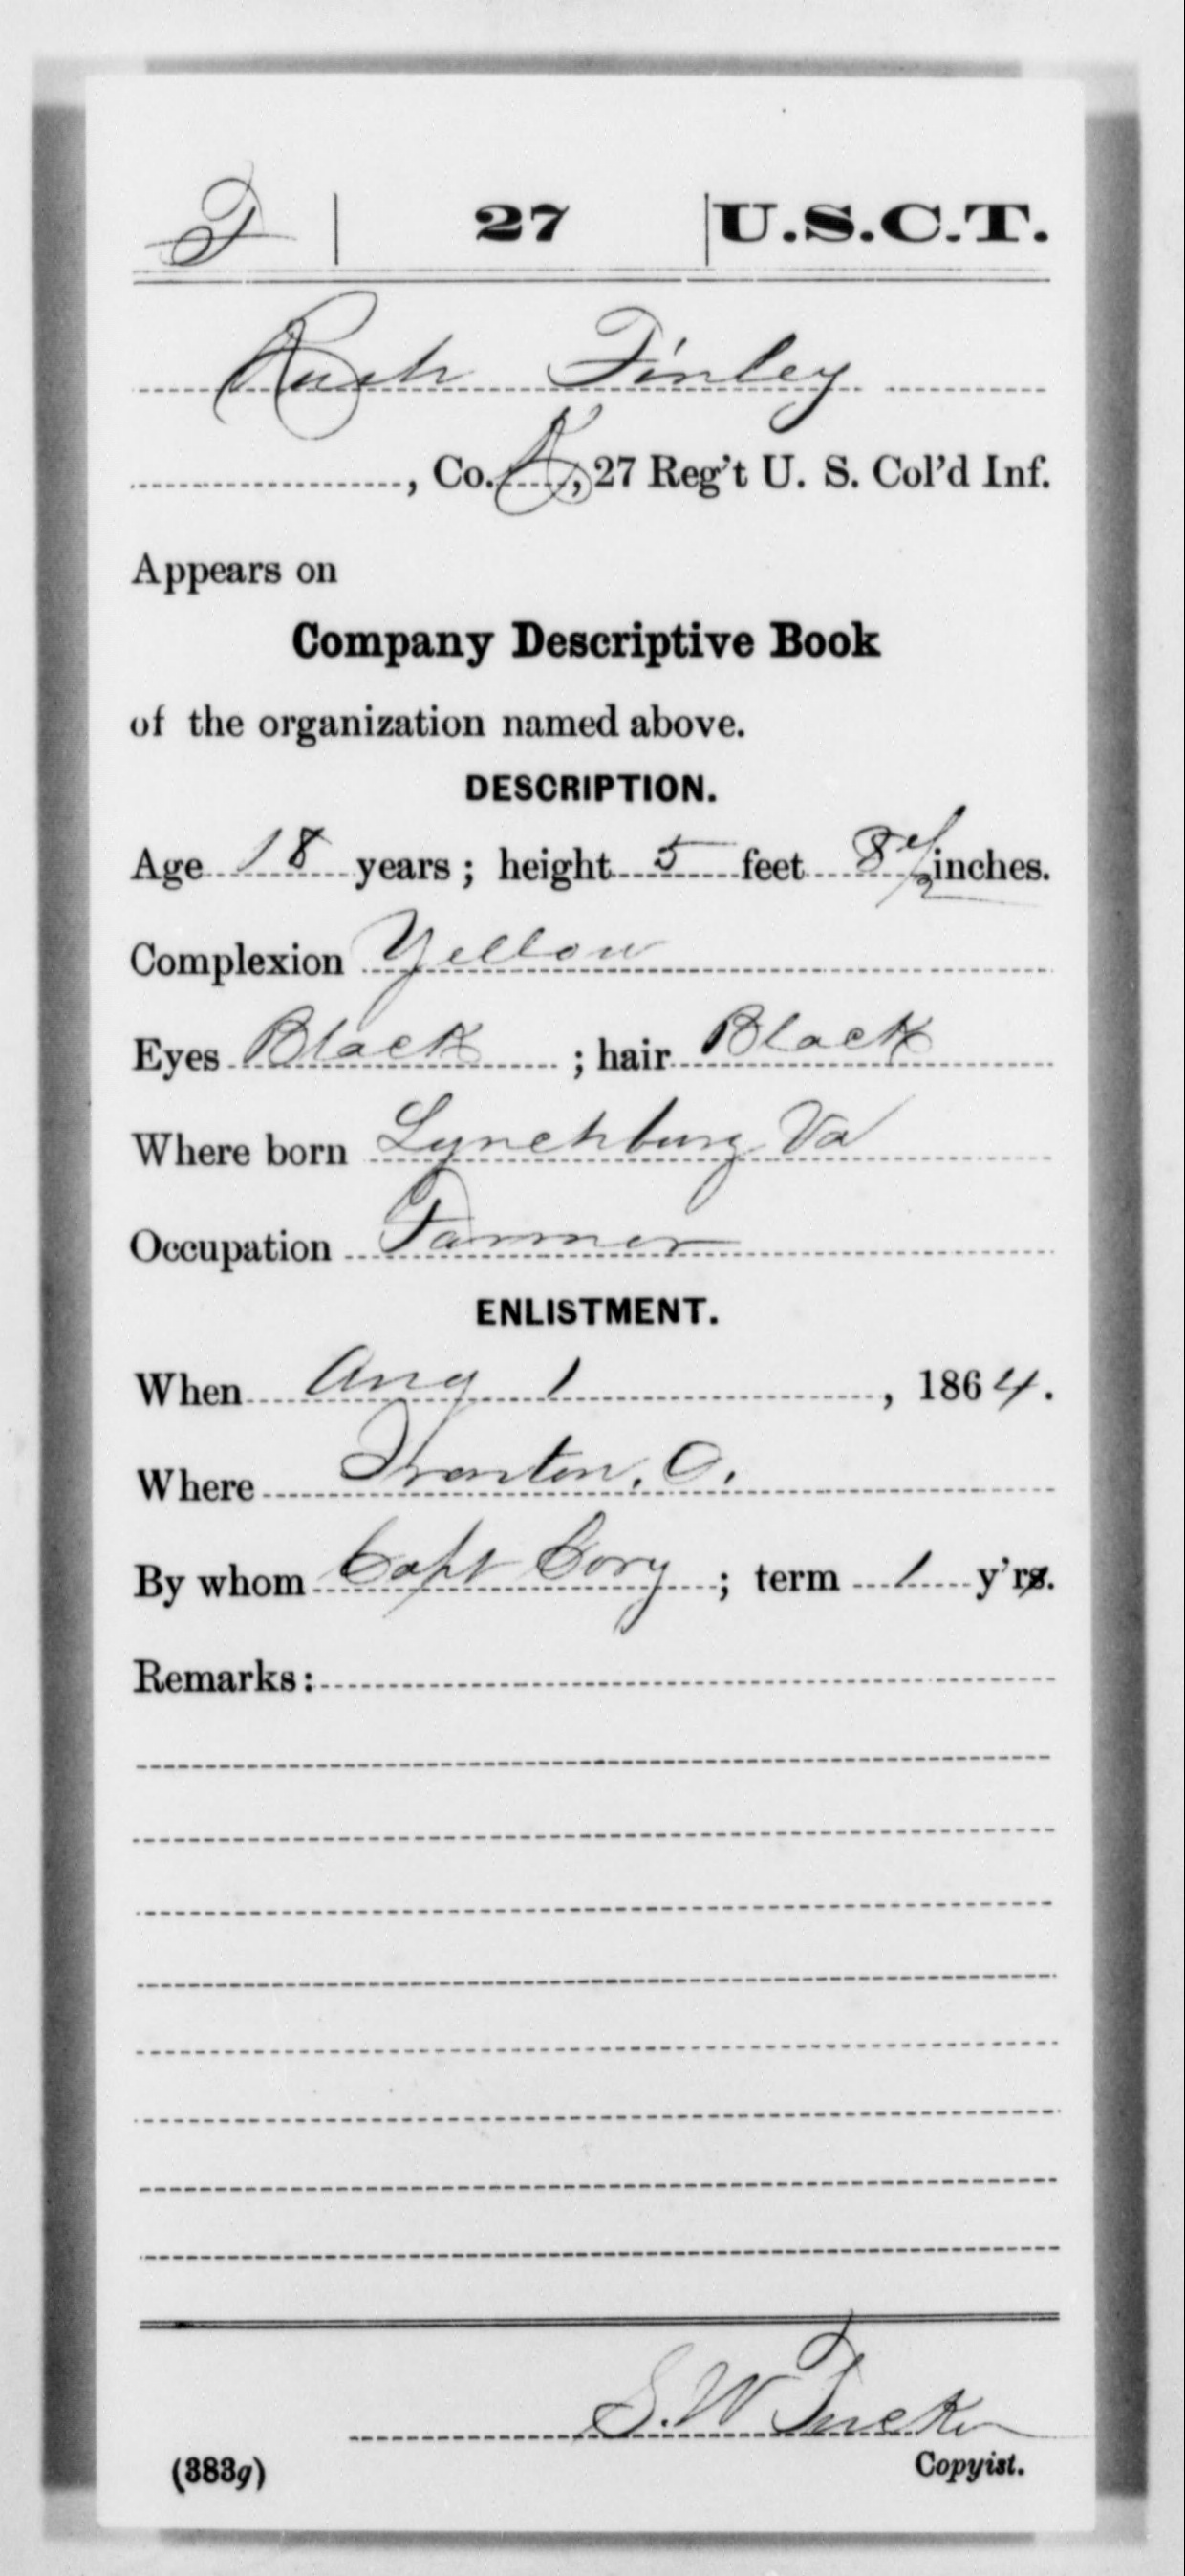 F | 27 | U.S.C.T.
Rush Finley
, Co. K, 27 Reg't U. S. Col'd Inf.
Appears on
Company Descriptive Book
of the organization named above.
DESCRIPTION.
Age 18 years; height 5 feet 8 1/2 inches.
Complexion Yellow
Eyes Black ; hair Black
Where born Lynchburg Va
Occupation Farmer
ENLISTMENT.
When Aug 1 , 1864.
Where Ironton, O.
By whom Capt Cory ; term 1 y'rs.
Remarks:
S. W. Tucker
(383g) Copyist.